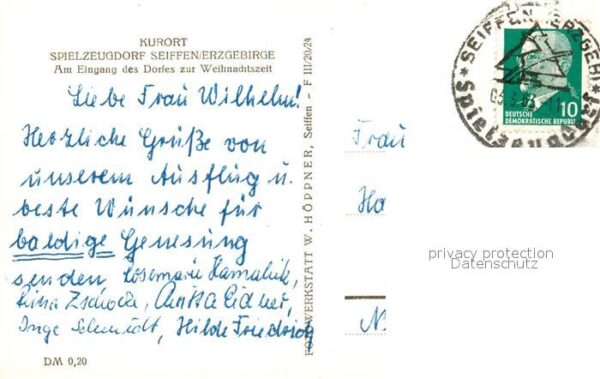 KURORT
SPIELZEUGDORF SEIFFEN/ERZGEBIRGE
Am Eingang des Dorfes zur Weihnachtszeit
Liebe Frau Wilhelm!
Herzliche Grüße von
unserem Ausflug u.
beste Wünsche für
baldige Genesung
senden Rosemarie
Anita
Inge Schmidt, Hilde Friedrich
DM 0,20
FOTOWERKSTATT W. HÖPPNER, Seiffen F III/20/24
Frau
SEIFFEN (ERZGEB)
Spielzeugdorf
10
DEUTSCHE
DEMOKRATISCHE REPUBLIK
privacy protection
Datenschutz